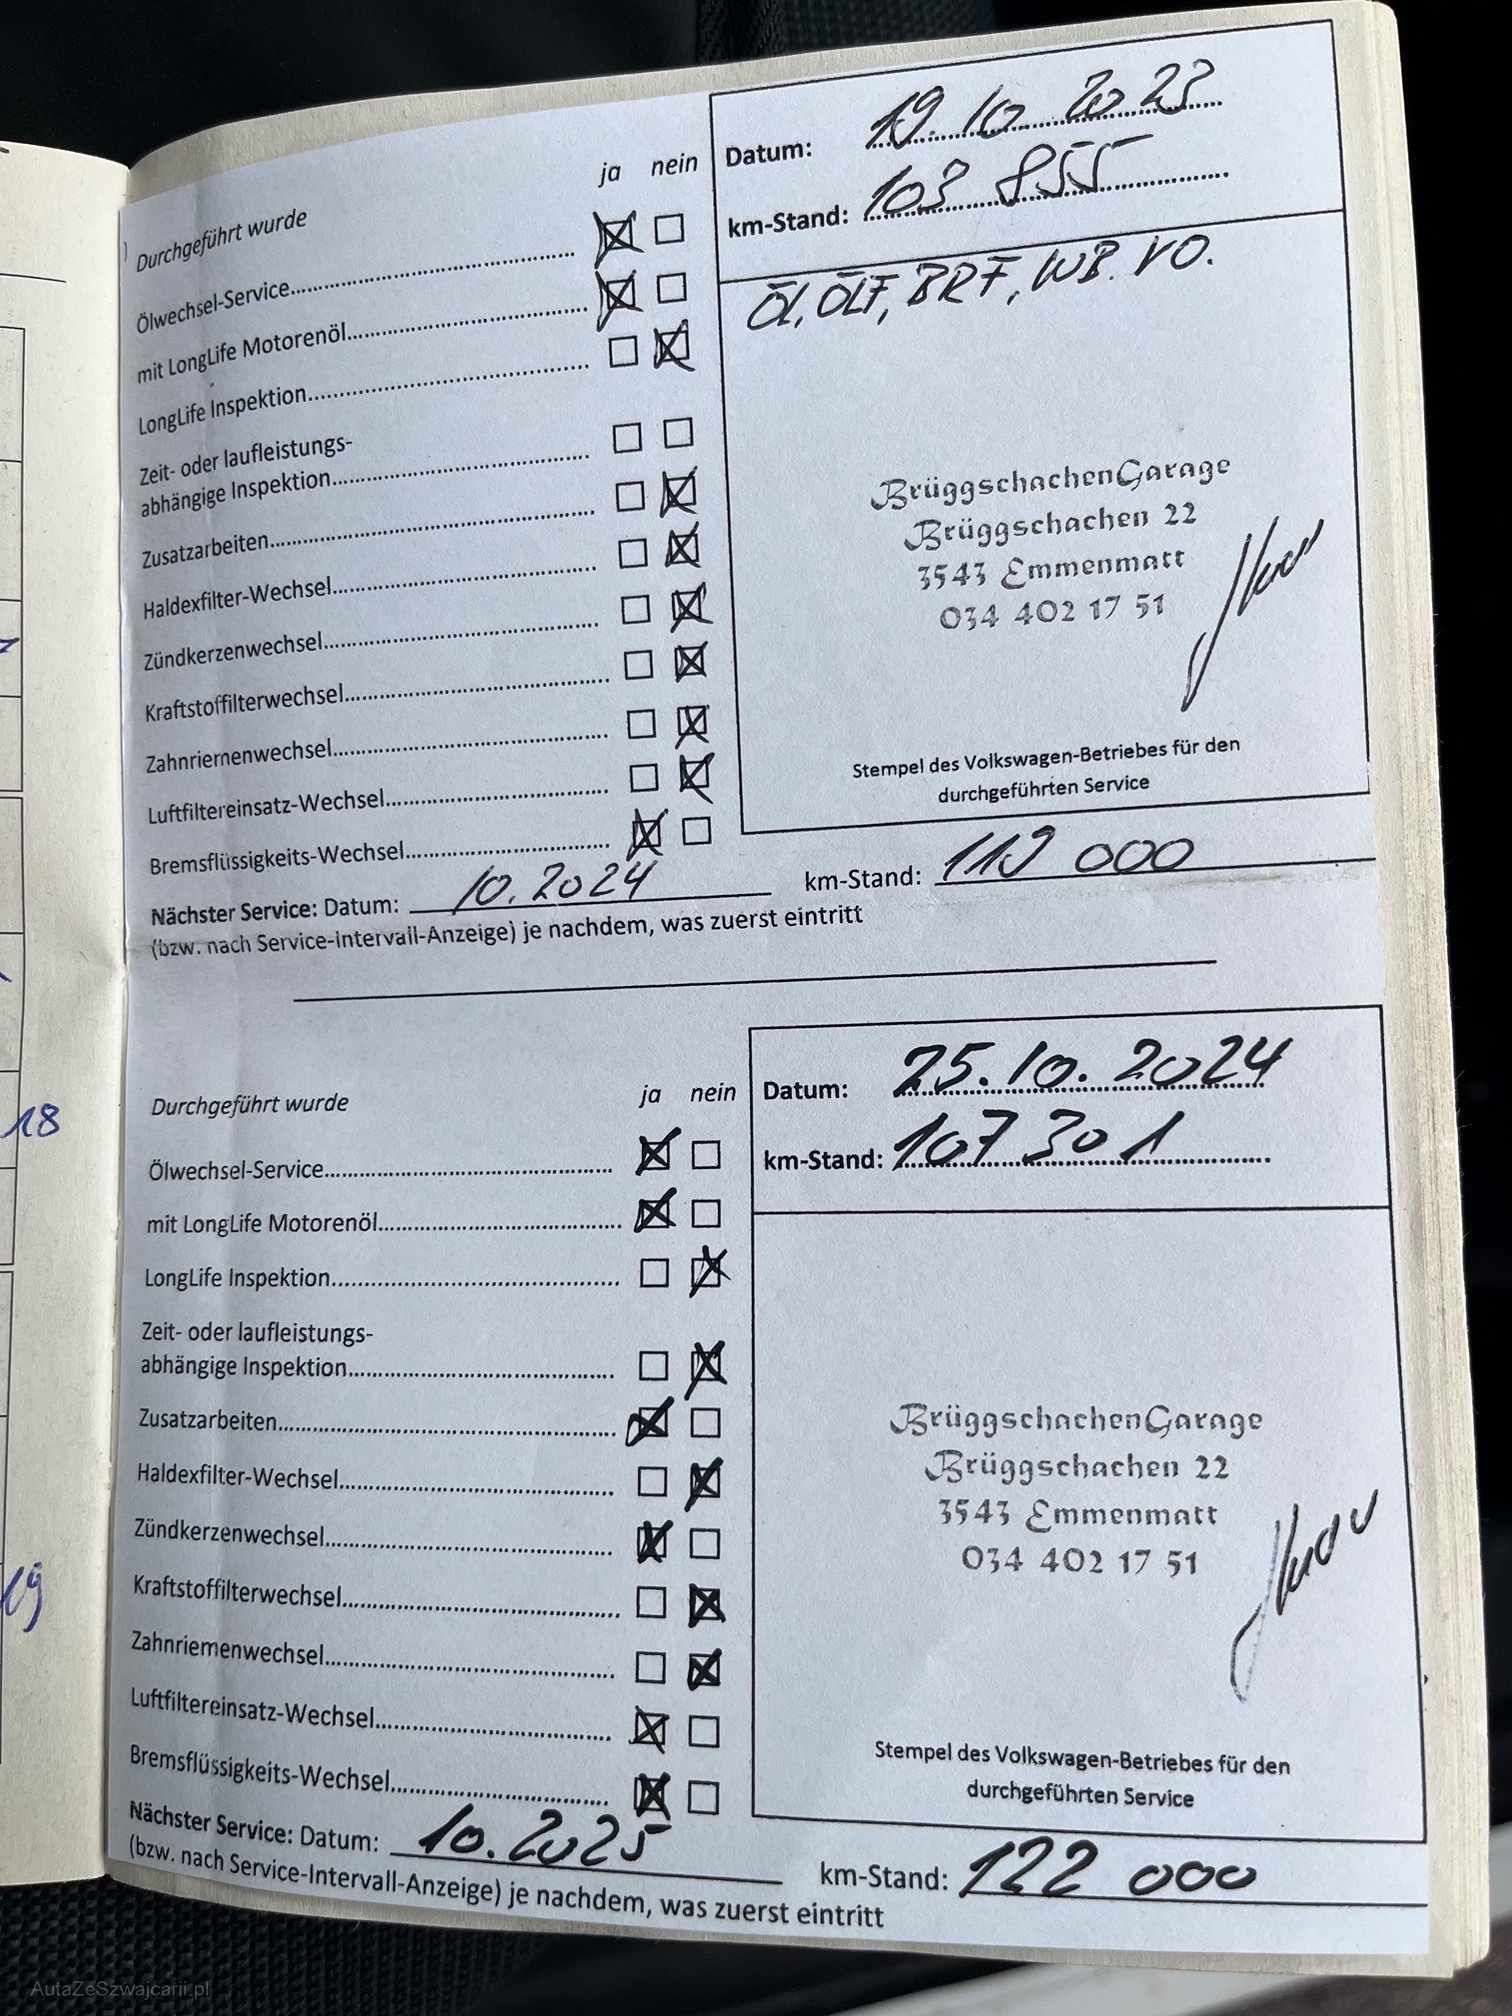 Durchgeführt wurde ja nein
Ölwechsel-Service
mit LongLife Motorenöl
LongLife Inspektion
Zeit- oder laufleistungs-
abhängige Inspektion
Zusatzarbeiten
Haldexfilter-Wechsel
Zündkerzenwechsel
Kraftstoffilterwechsel
Zahnriemenwechsel
Luftfiltereinsatz-Wechsel
Bremsflüssigkeits-Wechsel
Datum: 19.10.2023
km-Stand: 103 855
ÖL, ÖLF, BRF, WB. VO.
BrüggschachenGarage
Brüggschachen 22
3543 Emmenmatt
034 402 17 51
Stempel des Volkswagen-Betriebes für den
durchgeführten Service
Nächster Service: Datum: 10.2024 km-Stand: 119 000
(bzw. nach Service-Intervall-Anzeige) je nachdem, was zuerst eintritt
Durchgeführt wurde ja nein
Ölwechsel-Service
mit LongLife Motorenöl
LongLife Inspektion
Zeit- oder laufleistungs-
abhängige Inspektion
Zusatzarbeiten
Haldexfilter-Wechsel
Zündkerzenwechsel
Kraftstoffilterwechsel
Zahnriemenwechsel
Luftfiltereinsatz-Wechsel
Bremsflüssigkeits-Wechsel
Datum: 25.10.2024
km-Stand: 107 301
BrüggschachenGarage
Brüggschachen 22
3543 Emmenmatt
034 402 17 51
Stempel des Volkswagen-Betriebes für den
durchgeführten Service
Nächster Service: Datum: 10.2025 km-Stand: 122 000
(bzw. nach Service-Intervall-Anzeige) je nachdem, was zuerst eintritt
18
19
AutaZeSzwajcarii.pl